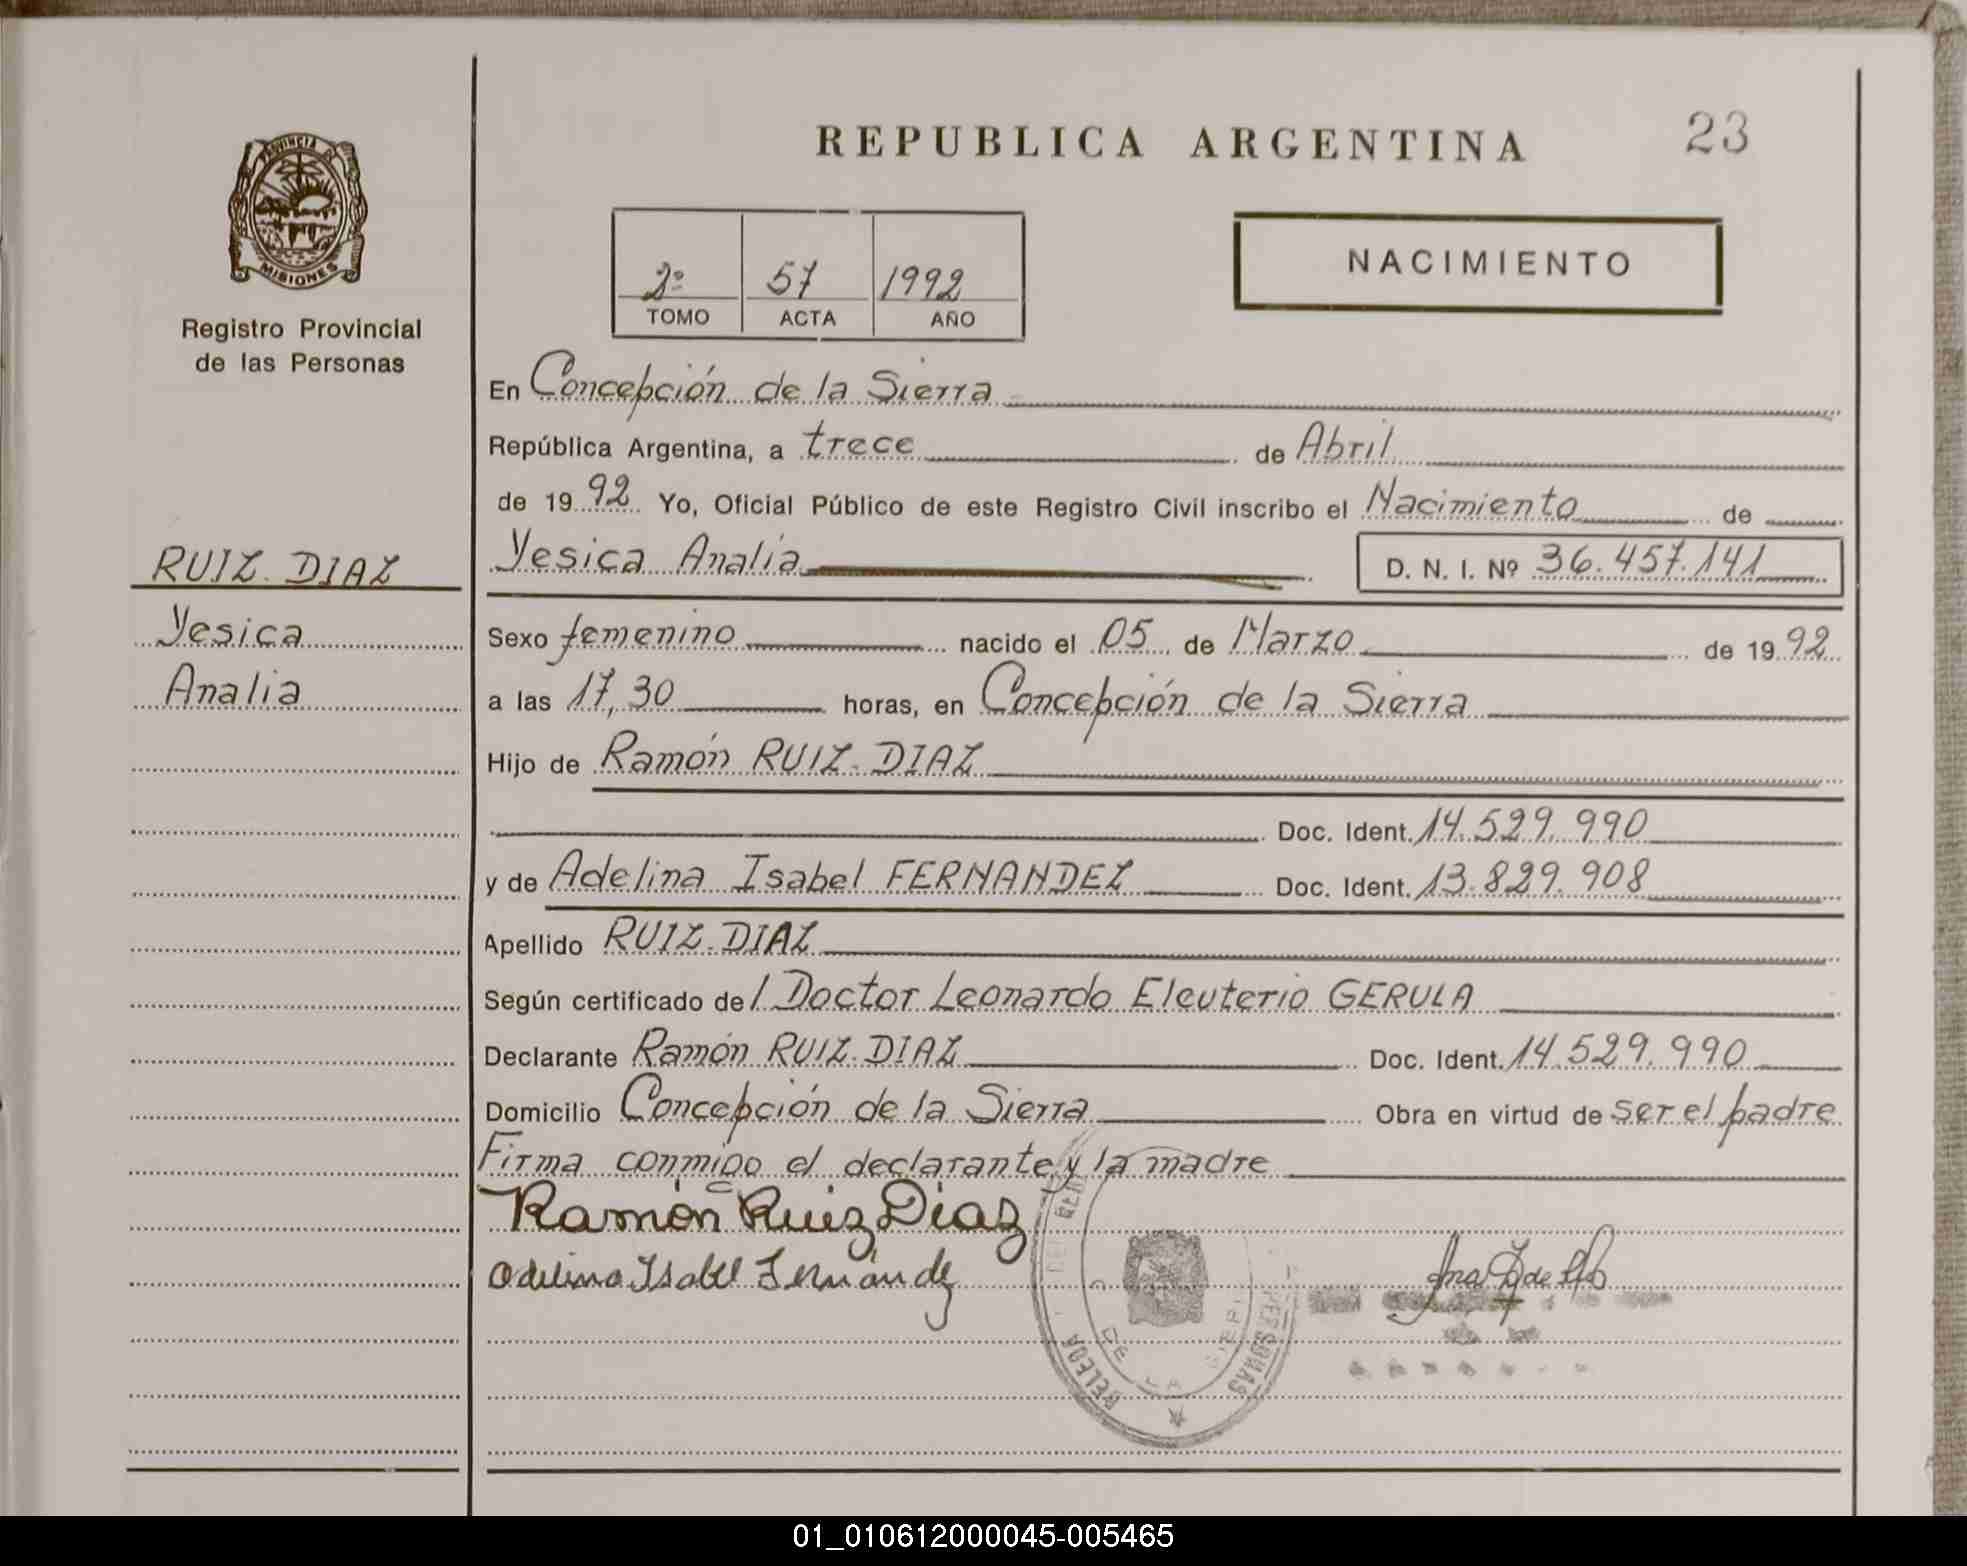 REPUBLICA ARGENTINA
23
PROVINCIA DE
MISIONES
Registro Provincial
de las Personas
2º 57 1992
TOMO ACTA AÑO
NACIMIENTO
En Concepción de la Sierra
República Argentina, a trece de Abril
de 1992 Yo, Oficial Público de este Registro Civil inscribo el Nacimiento de
Yesica Analía D. N. I. Nº 36.457.141
RUIZ DIAZ
Yesica
Analia
Sexo femenino nacido el 05 de Marzo de 1992
a las 17,30 horas, en Concepción de la Sierra
Hijo de Ramón RUIZ DIAZ
Doc. Ident. 14.529.990
y de Adelina Isabel FERNANDEZ Doc. Ident. 13.829.908
Apellido RUIZ DIAZ
Según certificado del Doctor Leonardo Eleuterio GERULA
Declarante Ramón RUIZ DIAZ Doc. Ident. 14.529.990
Domicilio Concepción de la Sierra Obra en virtud de ser el padre
Firma conmigo el declarante y la madre
Ramón Ruiz Diaz
Adelina Isabel Fernández
PERSONAS
DE LA
01_010612000045-005465